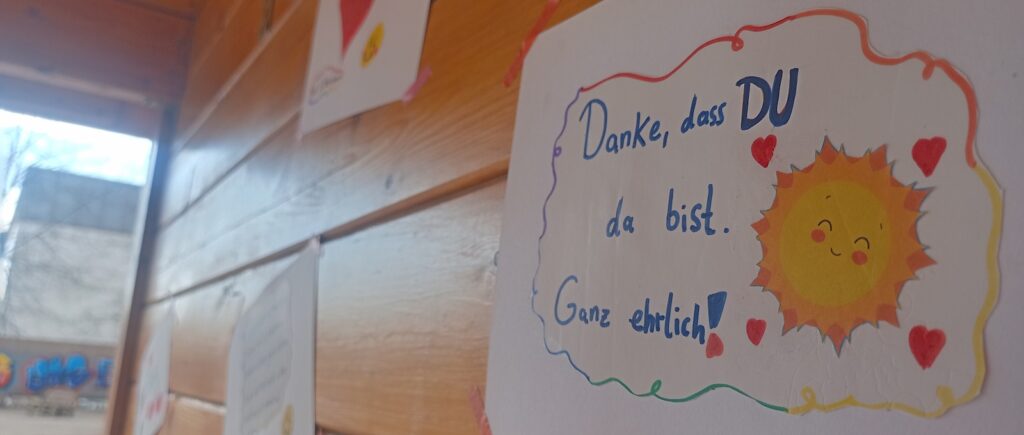 Danke, dass DU
da bist.
Ganz ehrlich!